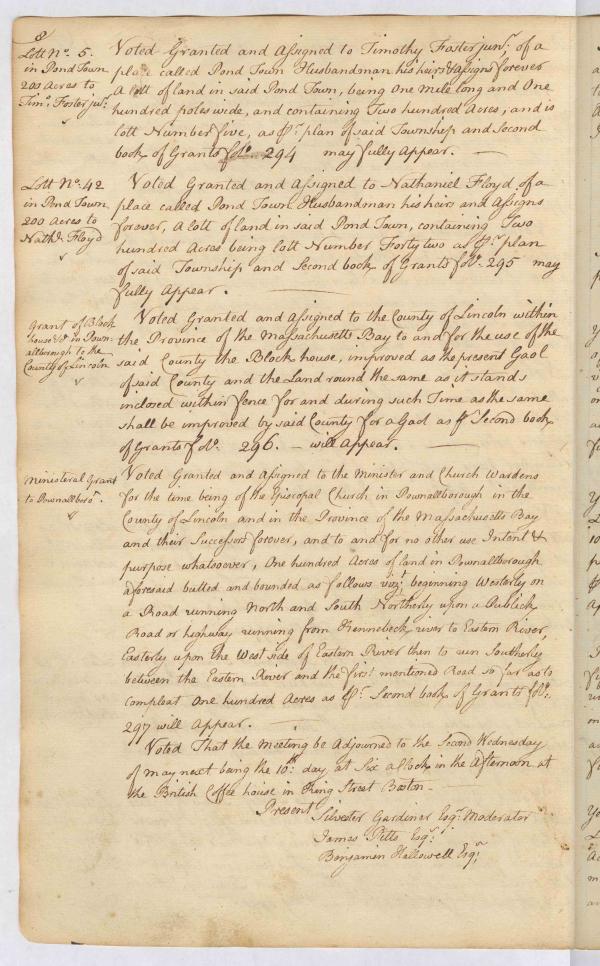 8
Lott No. 5.
in Pond Town
200 Acres to
Timo. Foster junr.
Voted Granted and Assigned to Timothy Foster junr. of a
place called Pond Town Husbandman his heirs & assigns forever
A lott of land in said Pond Town, being One Mile long and One
hundred poles wide, and containing Two hundred Acres, and is
lott Number five, as pr. plan of said Township and Second
book of Grants folo. 294 may fully Appear.
Lott No. 42
in Pond Town
200 Acres to
Nathl. Floyd
Voted Granted and Assigned to Nathaniel Floyd of a
place called Pond Town Husbandman his heirs and Assigns
forever, A lott of land in said Pond Town, containing Two
hundred Acres being lott Number Forty two as pr. plan
of said Township and Second book of Grants folo. 295 may
fully Appear.
Grant of Block
house &c. in Pown-
allborough to the
County of Lincoln
Voted Granted and Assigned to the County of Lincoln within
the Province of the Massachusetts Bay to and for the use of the
said County the Block house, improved as the present Gaol
of said County and the Land round the same as it stands
inclosed within fence for and during such Time as the same
shall be improved by said County for a Gaol as pr. Second book
of Grants folo. 296. – will Appear.
Ministeral Grant
to Pownallboro.
Voted Granted and Assigned to the Minister and Church Wardens
for the time being of the Episcopal Church in Pownallborough in the
County of Lincoln and in the Province of the Massachusetts Bay
and their Successors forever, and to and for no other use Intent &
purpose whatsoever, One hundred Acres of land in Pownallborough
aforesaid butted and bounded as follows vizt. beginning Westerly on
a Road running North and South Northerly upon a Publick
Road or highway running from Kennebeck river to Eastern River,
Easterly upon the West side of Eastern River then to run Southerly
between the Eastern River and the first mentioned Road so far as to
compleat One hundred Acres as pr. Second book of Grants folo.
297 will Appear.
Voted That the meeting be Adjourned to the Second Wednesday
of may next being the 10th. day at Six a Clock in the Afternoon at
the British Coffee house in King Street Boston.
Present
Silvester Gardiner Esqr. Moderator
James Pitts Esqr.
Benjamin Hallowell Esqr.